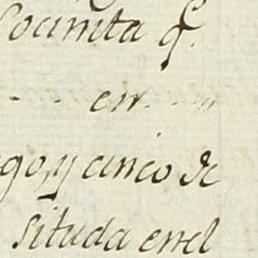 Cocinita q.
en
go, y cinco de
situda enel